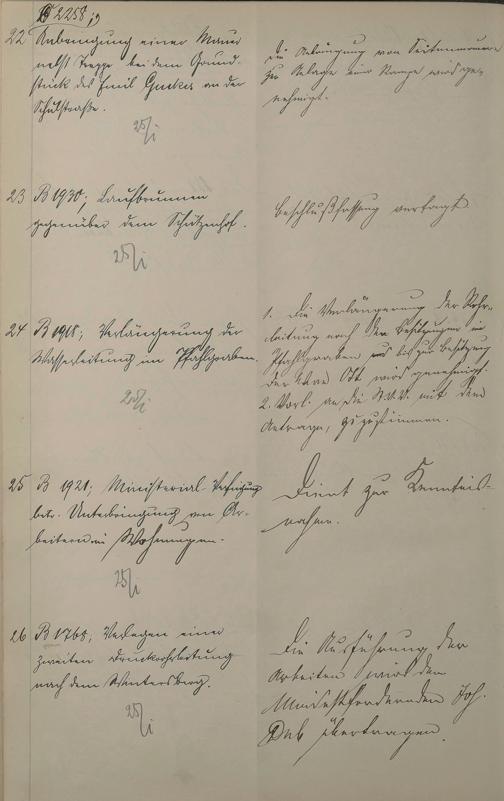 B 2258;
22 Anbringung einer Mauer
nebst Treppe bei dem Grund-
stück des Emil an der
Schulstraße.
25/I
Die Anbringung von Seitenmauern
zur Anlage einer Rampe wird ge-
nehmigt.
23 B 1930; Laufbrunnen
gegenüber dem Schützenhof.
25/I
Beschlußfassung vertagt
24 B 1918; Verlängerung der
Wasserleitung im Pfahlgraben.
25/I
1. Die Verlängerung der Rohr-
leitung nach den Besitzungen im
Pfahlgraben bis zur Besitzung
der Wwe Ott wird genehmigt.
2. Vorl. an die St.V.V. mit dem
Antrage, zuzustimmen.
25 B 1921; Ministerial-Verfügung
betr. Unterbringung von Ar-
beitern in Wohnungen.
25/I
Dient zur Kenntnis-
nahme.
26 B 1768; Verlegen einer
zweiten Druckrohrleitung
nach dem Wintersberg.
25/I
Die Ausführung der
Arbeiten wird dem
Mindestfordernden Joh.
übertragen.